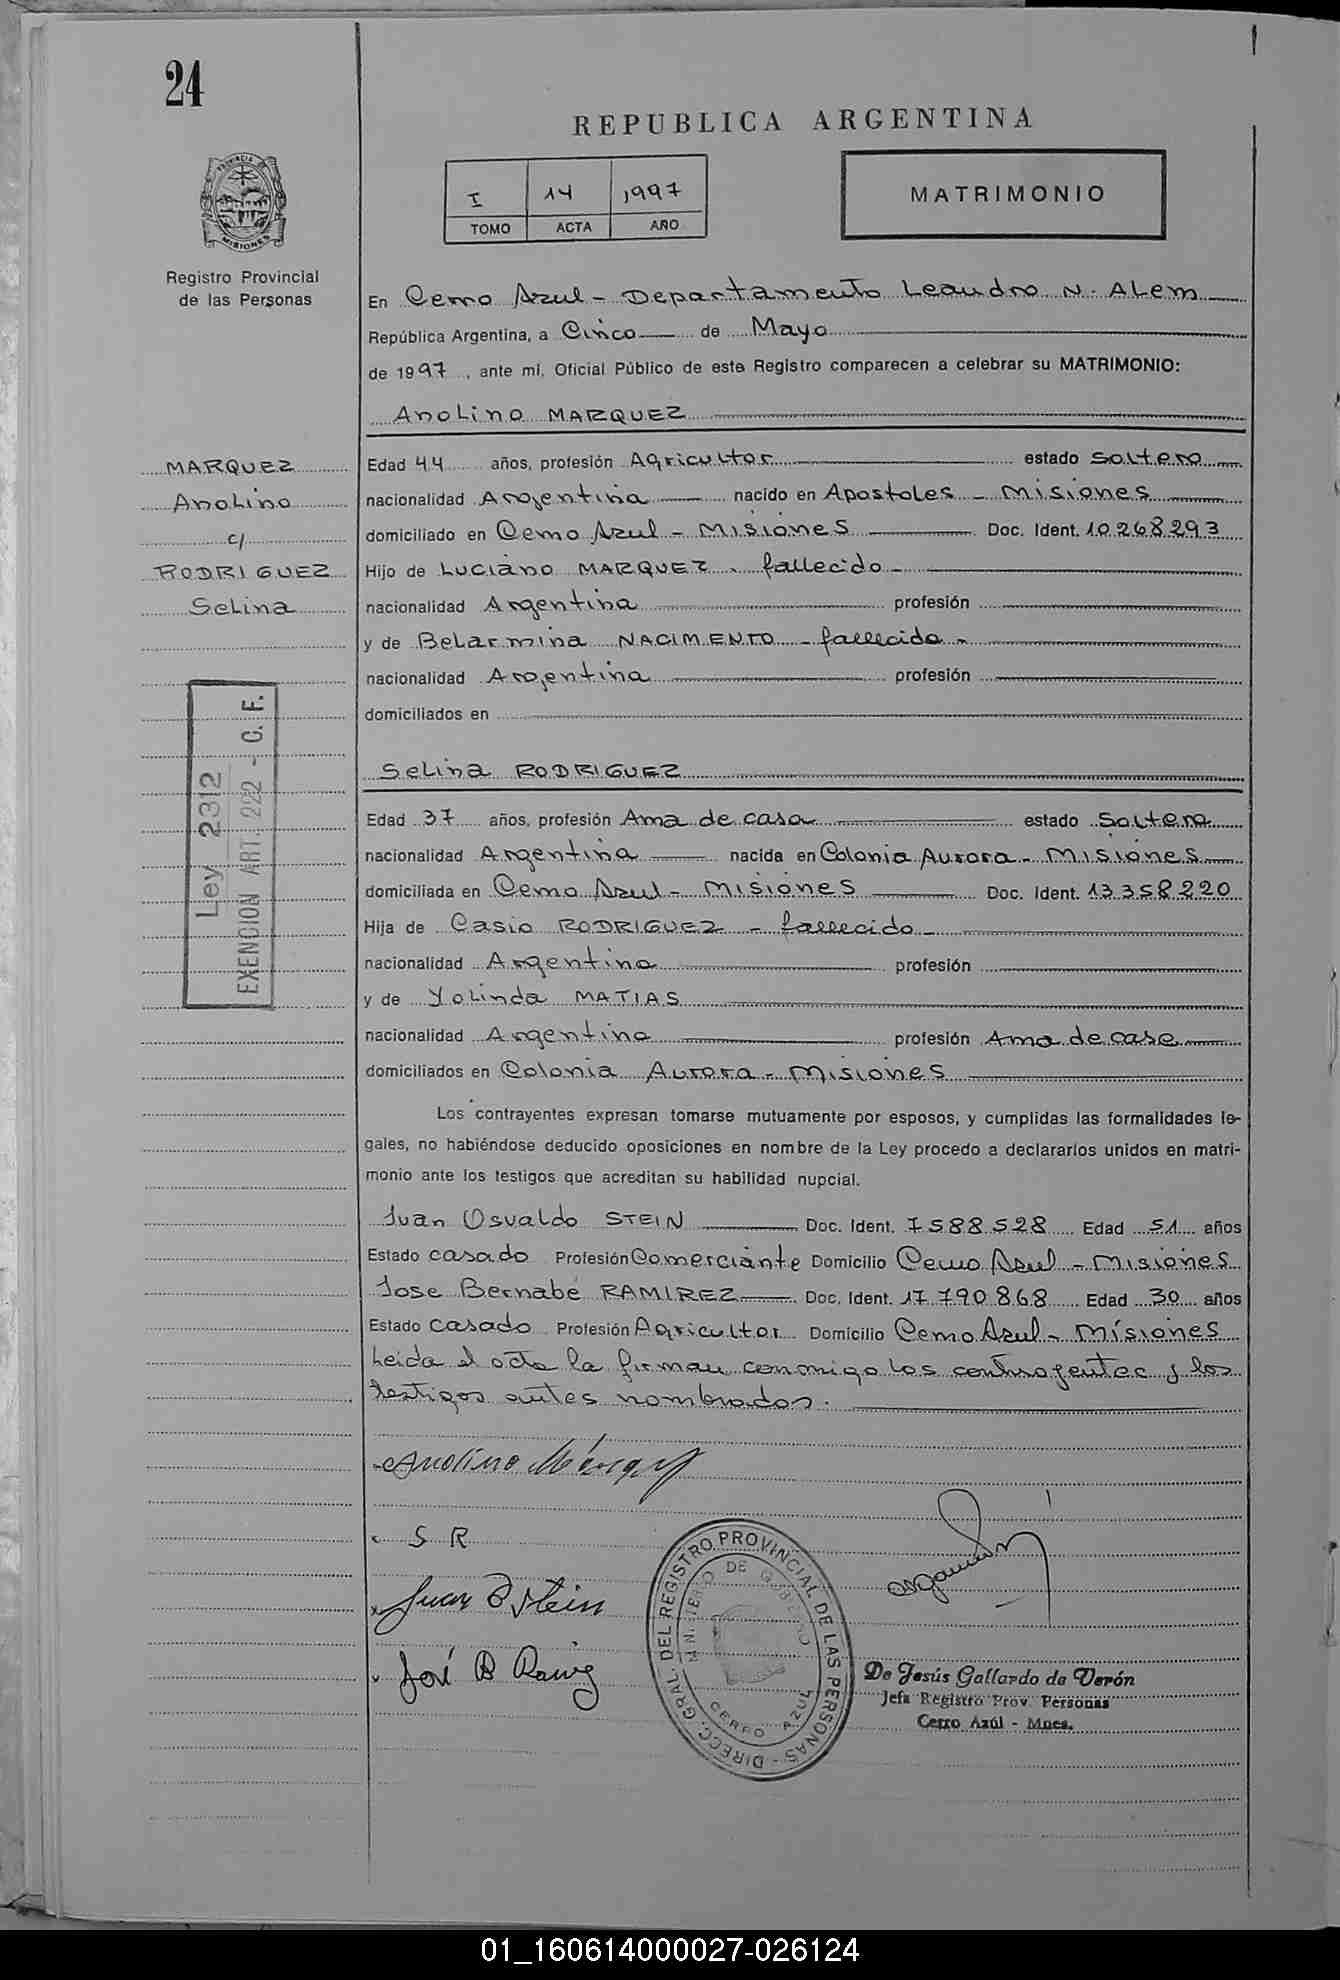 24
REPUBLICA ARGENTINA
PROVINCIA DE
MISIONES
I 14 1997
TOMO ACTA AÑO
MATRIMONIO
Registro Provincial
de las Personas
En Cerro Azul - Departamento Leandro N. Alem
República Argentina, a Cinco de Mayo
de 1997, ante mí, Oficial Público de este Registro comparecen a celebrar su MATRIMONIO:
Anolino MARQUEZ
MARQUEZ
Anolino
c/
RODRIGUEZ
Selina
Edad 44 años, profesión Agricultor estado Soltero
nacionalidad Argentina nacido en Apostoles - Misiones
domiciliado en Cerro Azul - Misiones Doc. Ident. 10.268.293
Hijo de Luciano MARQUEZ - fallecido -
nacionalidad Argentina profesión
y de Belarmina NACIMENTO - fallecida -
nacionalidad Argentina profesión
domiciliados en
Ley 2312
EXENCION ART. 222 - C. F.
Selina RODRIGUEZ
Edad 37 años, profesión Ama de casa estado Soltera
nacionalidad Argentina nacida en Colonia Aurora - Misiones
domiciliada en Cerro Azul - Misiones Doc. Ident. 13.358.220
Hija de Casio RODRIGUEZ - fallecido -
nacionalidad Argentina profesión
y de Yolinda MATIAS
nacionalidad Argentina profesión Ama de casa
domiciliados en Colonia Aurora - Misiones
Los contrayentes expresan tomarse mutuamente por esposos, y cumplidas las formalidades le-
gales, no habiéndose deducido oposiciones en nombre de la Ley procedo a declararlos unidos en matri-
monio ante los testigos que acreditan su habilidad nupcial.
Juan Osvaldo STEIN Doc. Ident. 7588.528 Edad 51 años
Estado casado Profesión Comerciante Domicilio Cerro Azul - Misiones
Jose Bernabé RAMIREZ Doc. Ident. 17.790.868 Edad 30 años
Estado casado Profesión Agricultor Domicilio Cerro Azul - Misiones
Leida el acta la firman conmigo los contrayentes y los
testigos antes nombrados.
Anolino Márquez
S R
Juan O Stein
José B Ramirez
DIRECC. GRAL DEL REGISTRO PROVINCIAL DE LAS PERSONAS -
MINISTERIO DE GOBIERNO
CERRO AZUL
De Jesús Gallardo de Verón
Jefa Registro Prov. Personas
Cerro Azúl - Mnes.
01_160614000027-026124